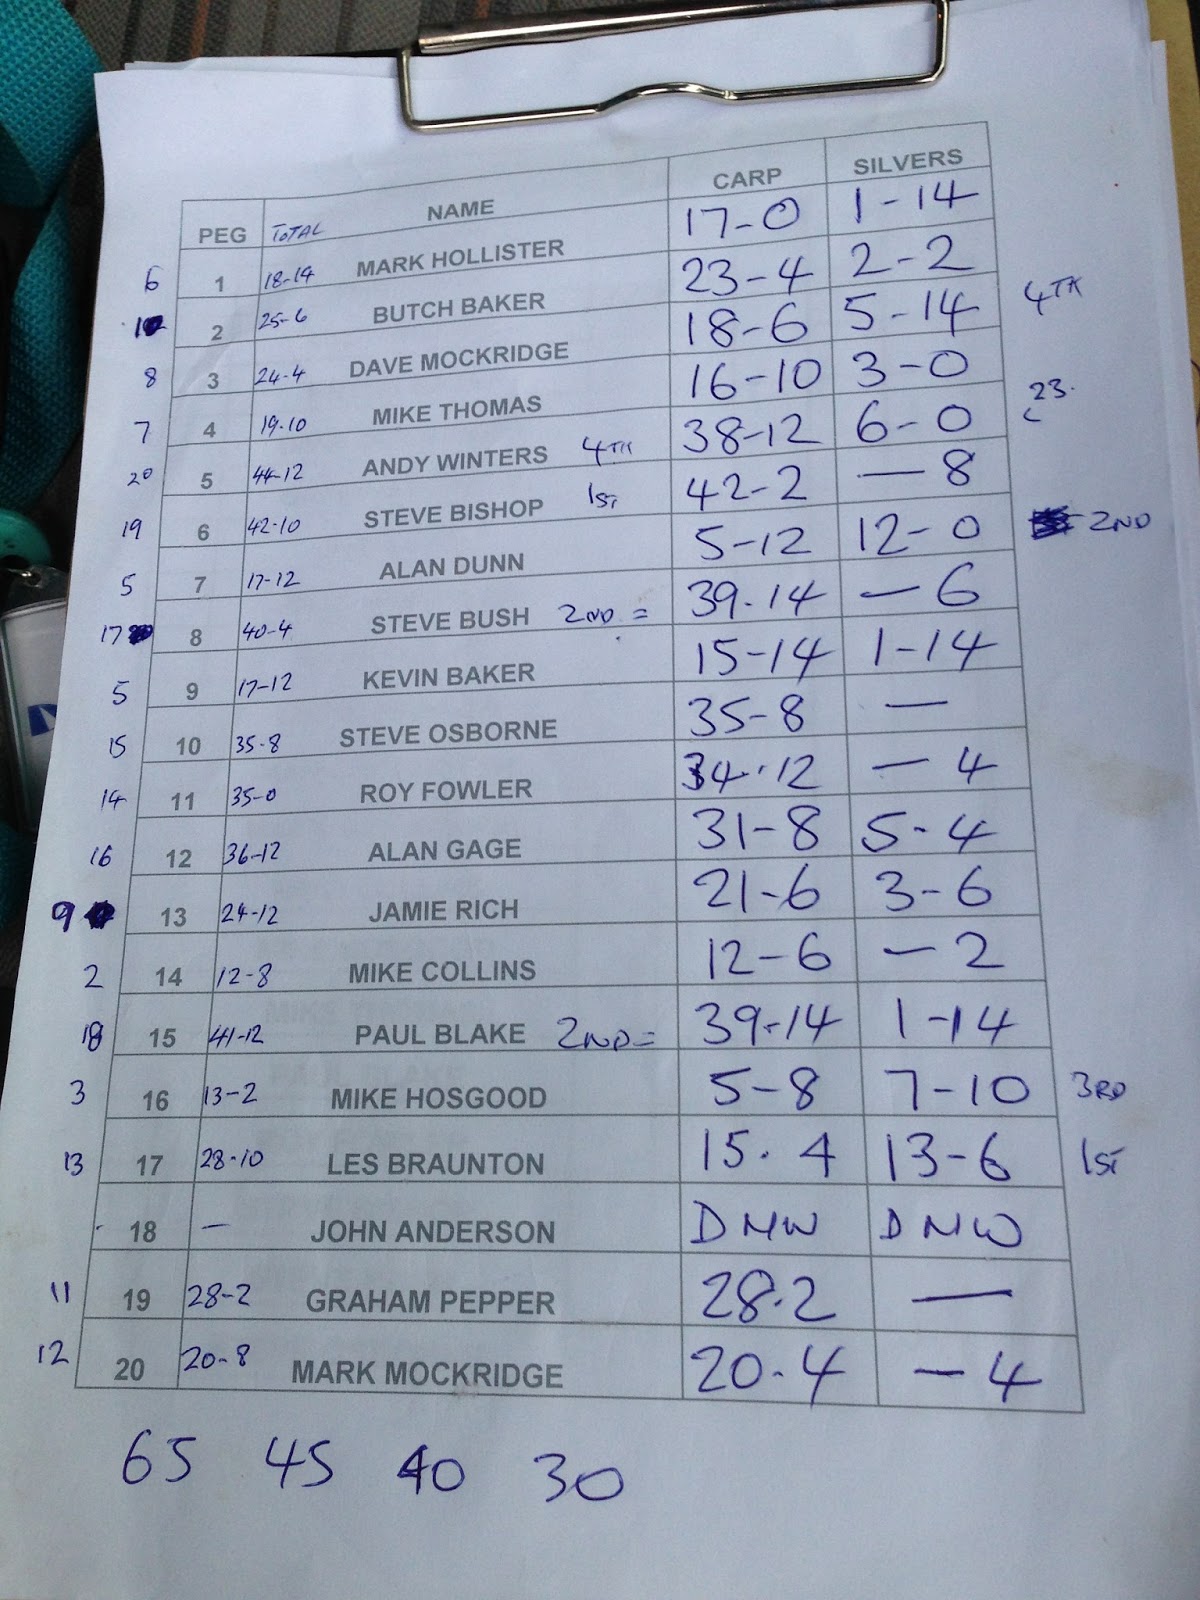 PEG TOTAL NAME CARP SILVERS
6 1 18-14 MARK HOLLISTER 17-0 1-14
2 25-6 BUTCH BAKER 23-4 2-2
8 3 24-4 DAVE MOCKRIDGE 18-6 5-14 4TH
7 4 19-10 MIKE THOMAS 16-10 3-0
20 5 44-12 ANDY WINTERS 4TH 38-12 6-0 23.
19 6 42-10 STEVE BISHOP 1ST 42-2 — 8
5 7 17-12 ALAN DUNN 5-12 12-0 2ND
17 8 40-4 STEVE BUSH 2ND = 39.14 — 6
5 9 17-12 KEVIN BAKER 15-14 1-14
15 10 35-8 STEVE OSBORNE 35-8 —
14 11 35-0 ROY FOWLER 34.12 — 4
16 12 36-12 ALAN GAGE 31-8 5-4
9 13 24-12 JAMIE RICH 21-6 3-6
2 14 12-8 MIKE COLLINS 12-6 — 2
18 15 41-12 PAUL BLAKE 2ND = 39-14 1-14
3 16 13-2 MIKE HOSGOOD 5-8 7-10 3RD
13 17 28-10 LES BRAUNTON 15.4 13-6 1ST
18 — JOHN ANDERSON DNW DNW
11 19 28-2 GRAHAM PEPPER 28.2 —
12 20 20-8 MARK MOCKRIDGE 20-4 — 4
65 45 40 30